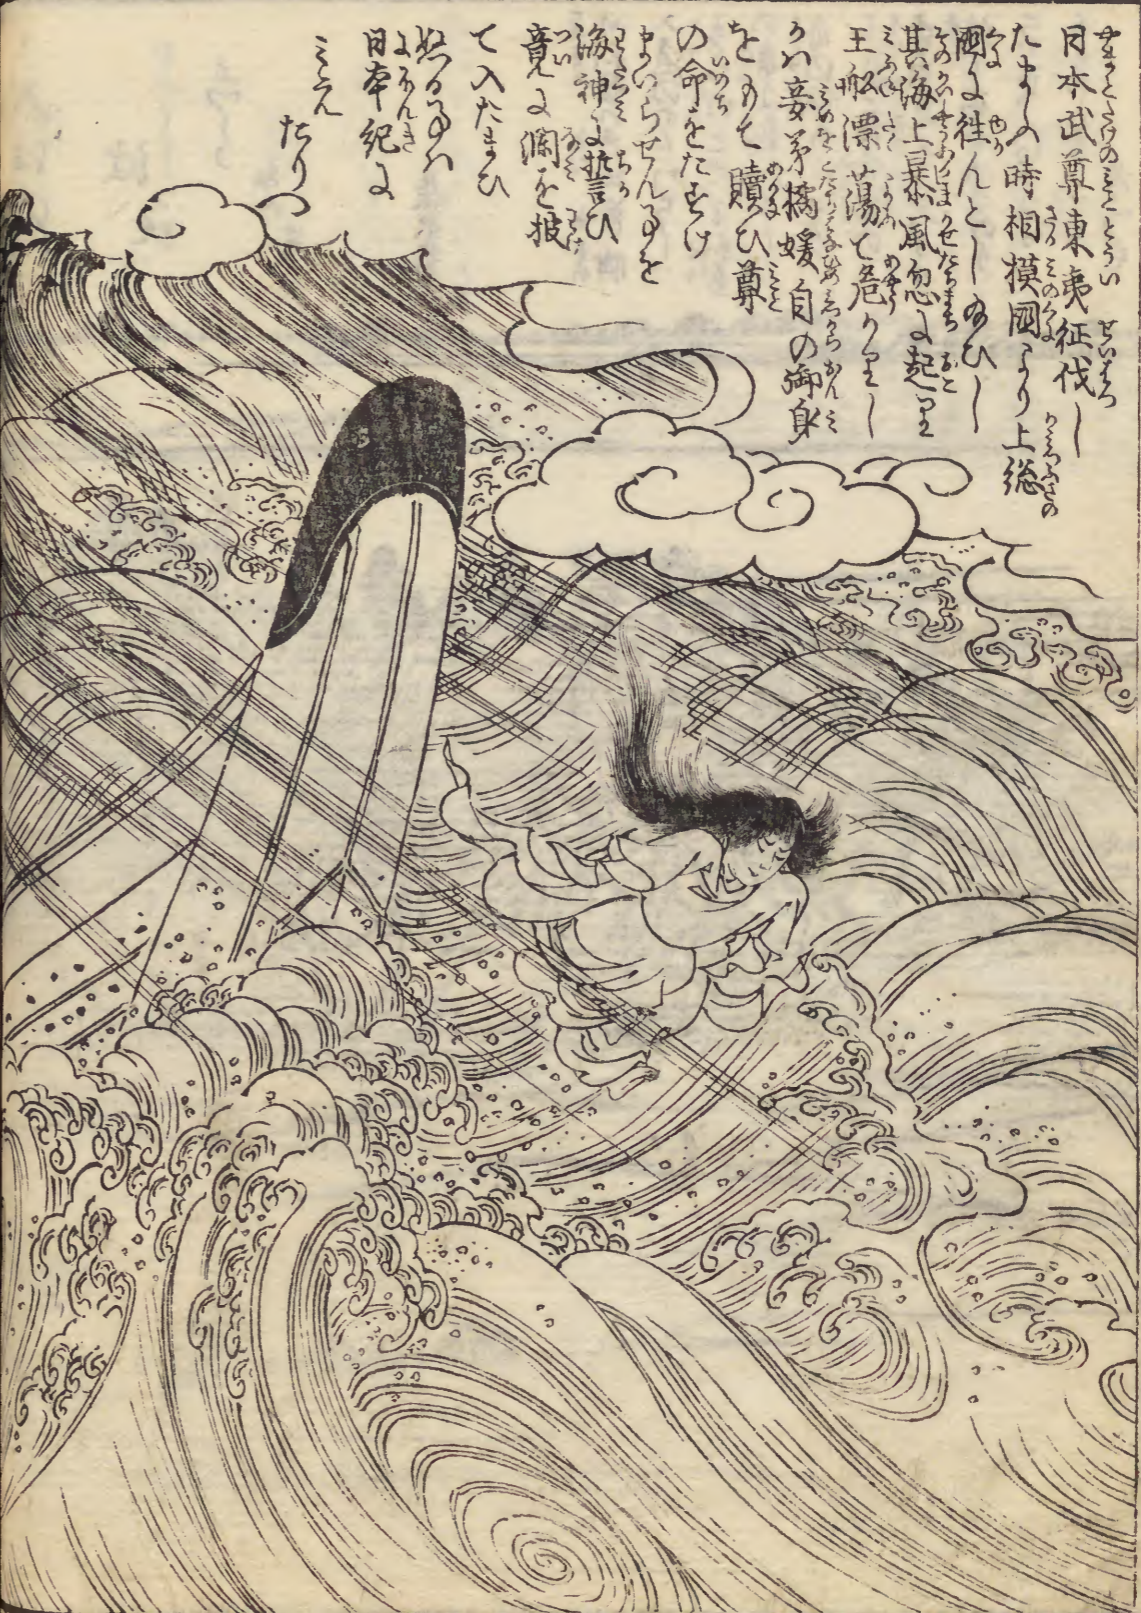 日本武尊東夷征伐し
たまふ時相模國より上総
國に往んとし給ひし
其海上暴風忽に起りて
王船漂蕩て危かりし
かハ妾弟橘媛自の御身
をもて贖ひ尊
の命をたすけ
まいらせん事を
海神に誓ひ
竟に瀾を披
て入たまひ
ぬる事ハ
日本紀に
みえ
たり